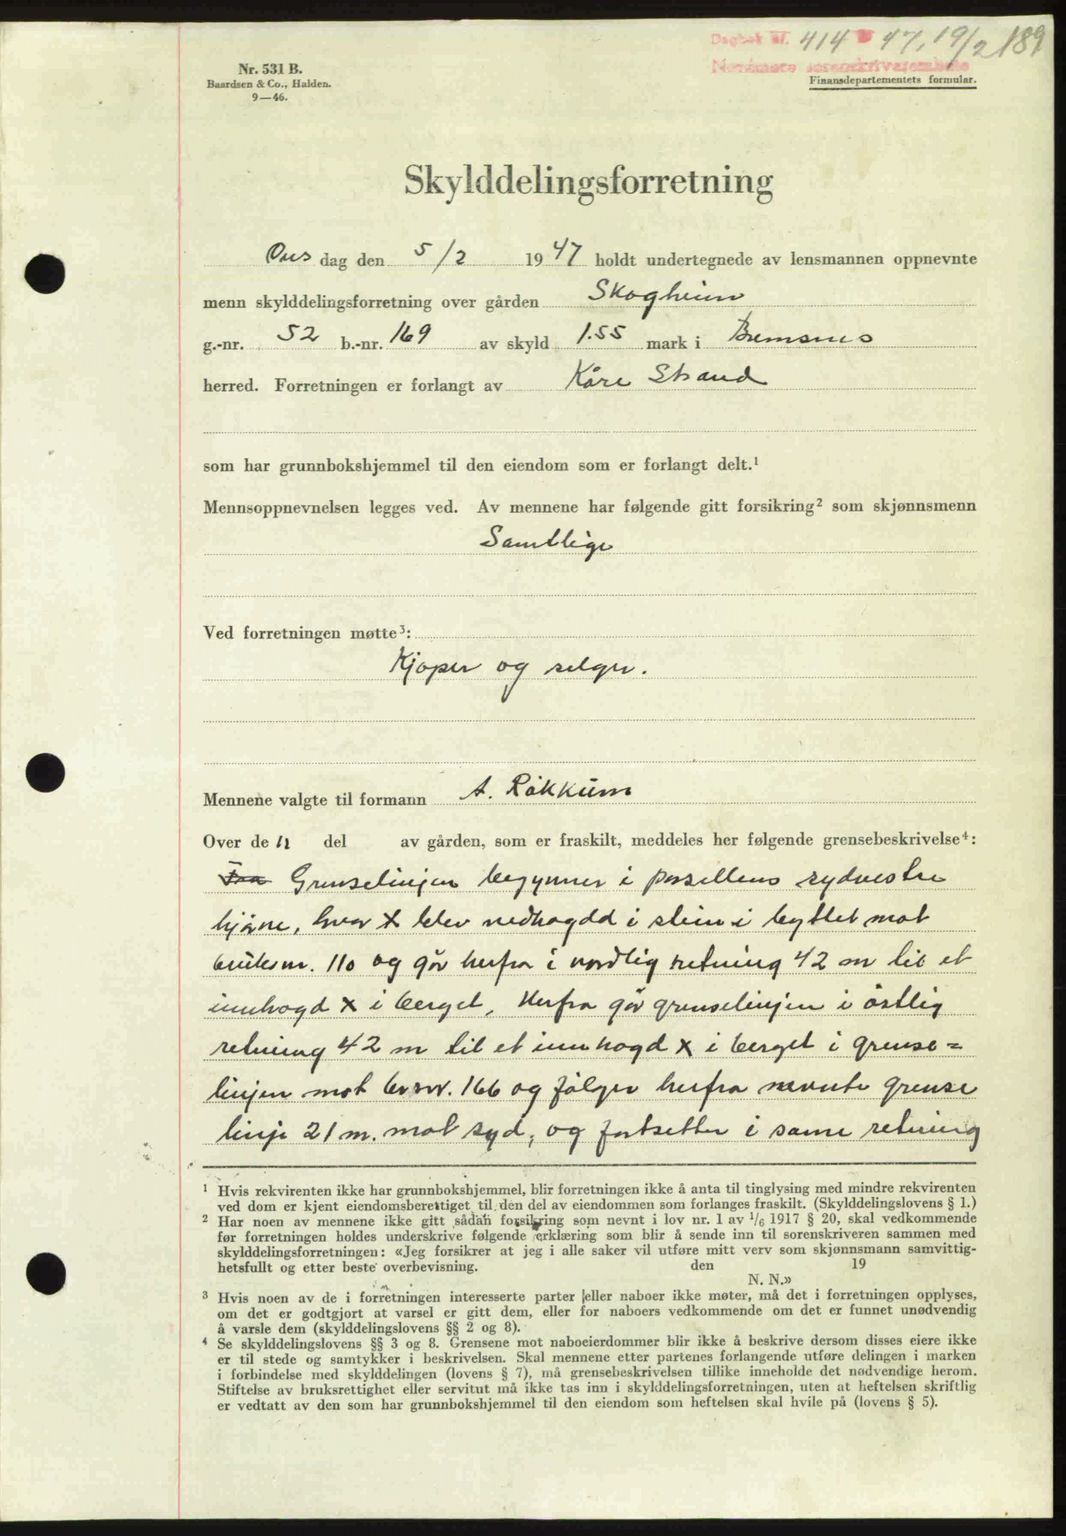 Dagbok nr. 414 47, 19/2 189
Nordmøre sorenskriverembede
Nr. 531 B.
Baardsen & Co., Halden.
9—46.
Finansdepartementets formular.
Skylddelingsforretning
Ons dag den 5/2 19 47 holdt undertegnede av lensmannen oppnevnte
menn skylddelingsforretning over gården Skogheim
g.-nr. 52 b.-nr. 169 av skyld 1.55 mark i Bremsnes
herred. Forretningen er forlangt av Kåre Strand
som har grunnbokshjemmel til den eiendom som er forlangt delt.¹
Mennsoppnevnelsen legges ved. Av mennene har følgende gitt forsikring² som skjønnsmenn
Samtlige
Ved forretningen møtte³:
Kjøper og selger.
Mennene valgte til formann A. Røkkum
Over de n del av gården, som er fraskilt, meddeles her følgende grensebeskrivelse⁴:
Fra Grenselinjen begynner i parsellens sydvestre
hjörne, hvor X blev nedhogdd i stein i byttet mot
bruksnr. 110 og går herfra i nordlig retning 42 m til et
innhogd X i berget, Herfra går grenselinjen i östlig
retning 42 m til et innhogd X i berget i grense=
linjen mot br.nr. 166 og fölger herfra nevnte grense
linje 21 m. mot syd, og fortsetter i samme retning
¹ Hvis rekvirenten ikke har grunnbokshjemmel, blir forretningen ikke å anta til tinglysing med mindre rekvirenten
ved dom er kjent eiendomsberettiget til den del av eiendommen som forlanges fraskilt. (Skylddelingslovens § 1.)
² Har noen av mennene ikke gitt sådan forsikring som nevnt i lov nr. 1 av 1/6 1917 § 20, skal vedkommende
før forretningen holdes underskrive følgende erklæring som blir å sende inn til sorenskriveren sammen med
skylddelingsforretningen: «Jeg forsikrer at jeg i alle saker vil utføre mitt verv som skjønnsmann samvittig-
hetsfullt og etter beste overbevisning. den 19
N. N.»
³ Hvis noen av de i forretningen interesserte parter eller naboer ikke møter, må det i forretningen opplyses,
om det er godtgjort at varsel er gitt dem, eller for naboers vedkommende om det er funnet unødvendig
å varsle dem (skylddelingslovens §§ 2 og 8).
⁴ Se skylddelingslovens §§ 3 og 8. Grensene mot naboeierdommer blir ikke å beskrive dersom disses eiere ikke
er til stede og samtykker i beskrivelsen. Skal mennene etter partenes forlangende utføre delingen i marken
i forbindelse med skylddelingen (lovens § 7), må grensebeskrivelsen tillike inneholde det nødvendige herom.
Stiftelse av bruksrettighet eller servitut må ikke tas inn i skylddelingsforretningen, uten at heftelsen skriftlig
er vedtatt av den som har grunnbokshjemmel til den eiendom som heftelsen skal hvile på (lovens § 5).